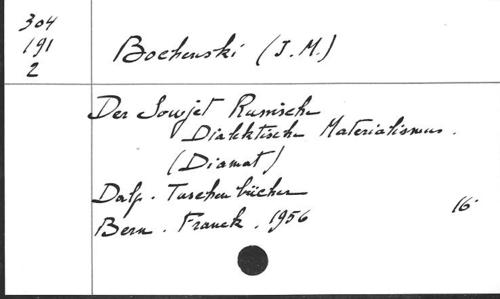 304
191
2
Bochenski (J. M.)
Der Sowjet Russische
Dialektische Materialismus.
(Diamat)
Dalp. Taschenbücher
Bern. Francke. 1956
16°